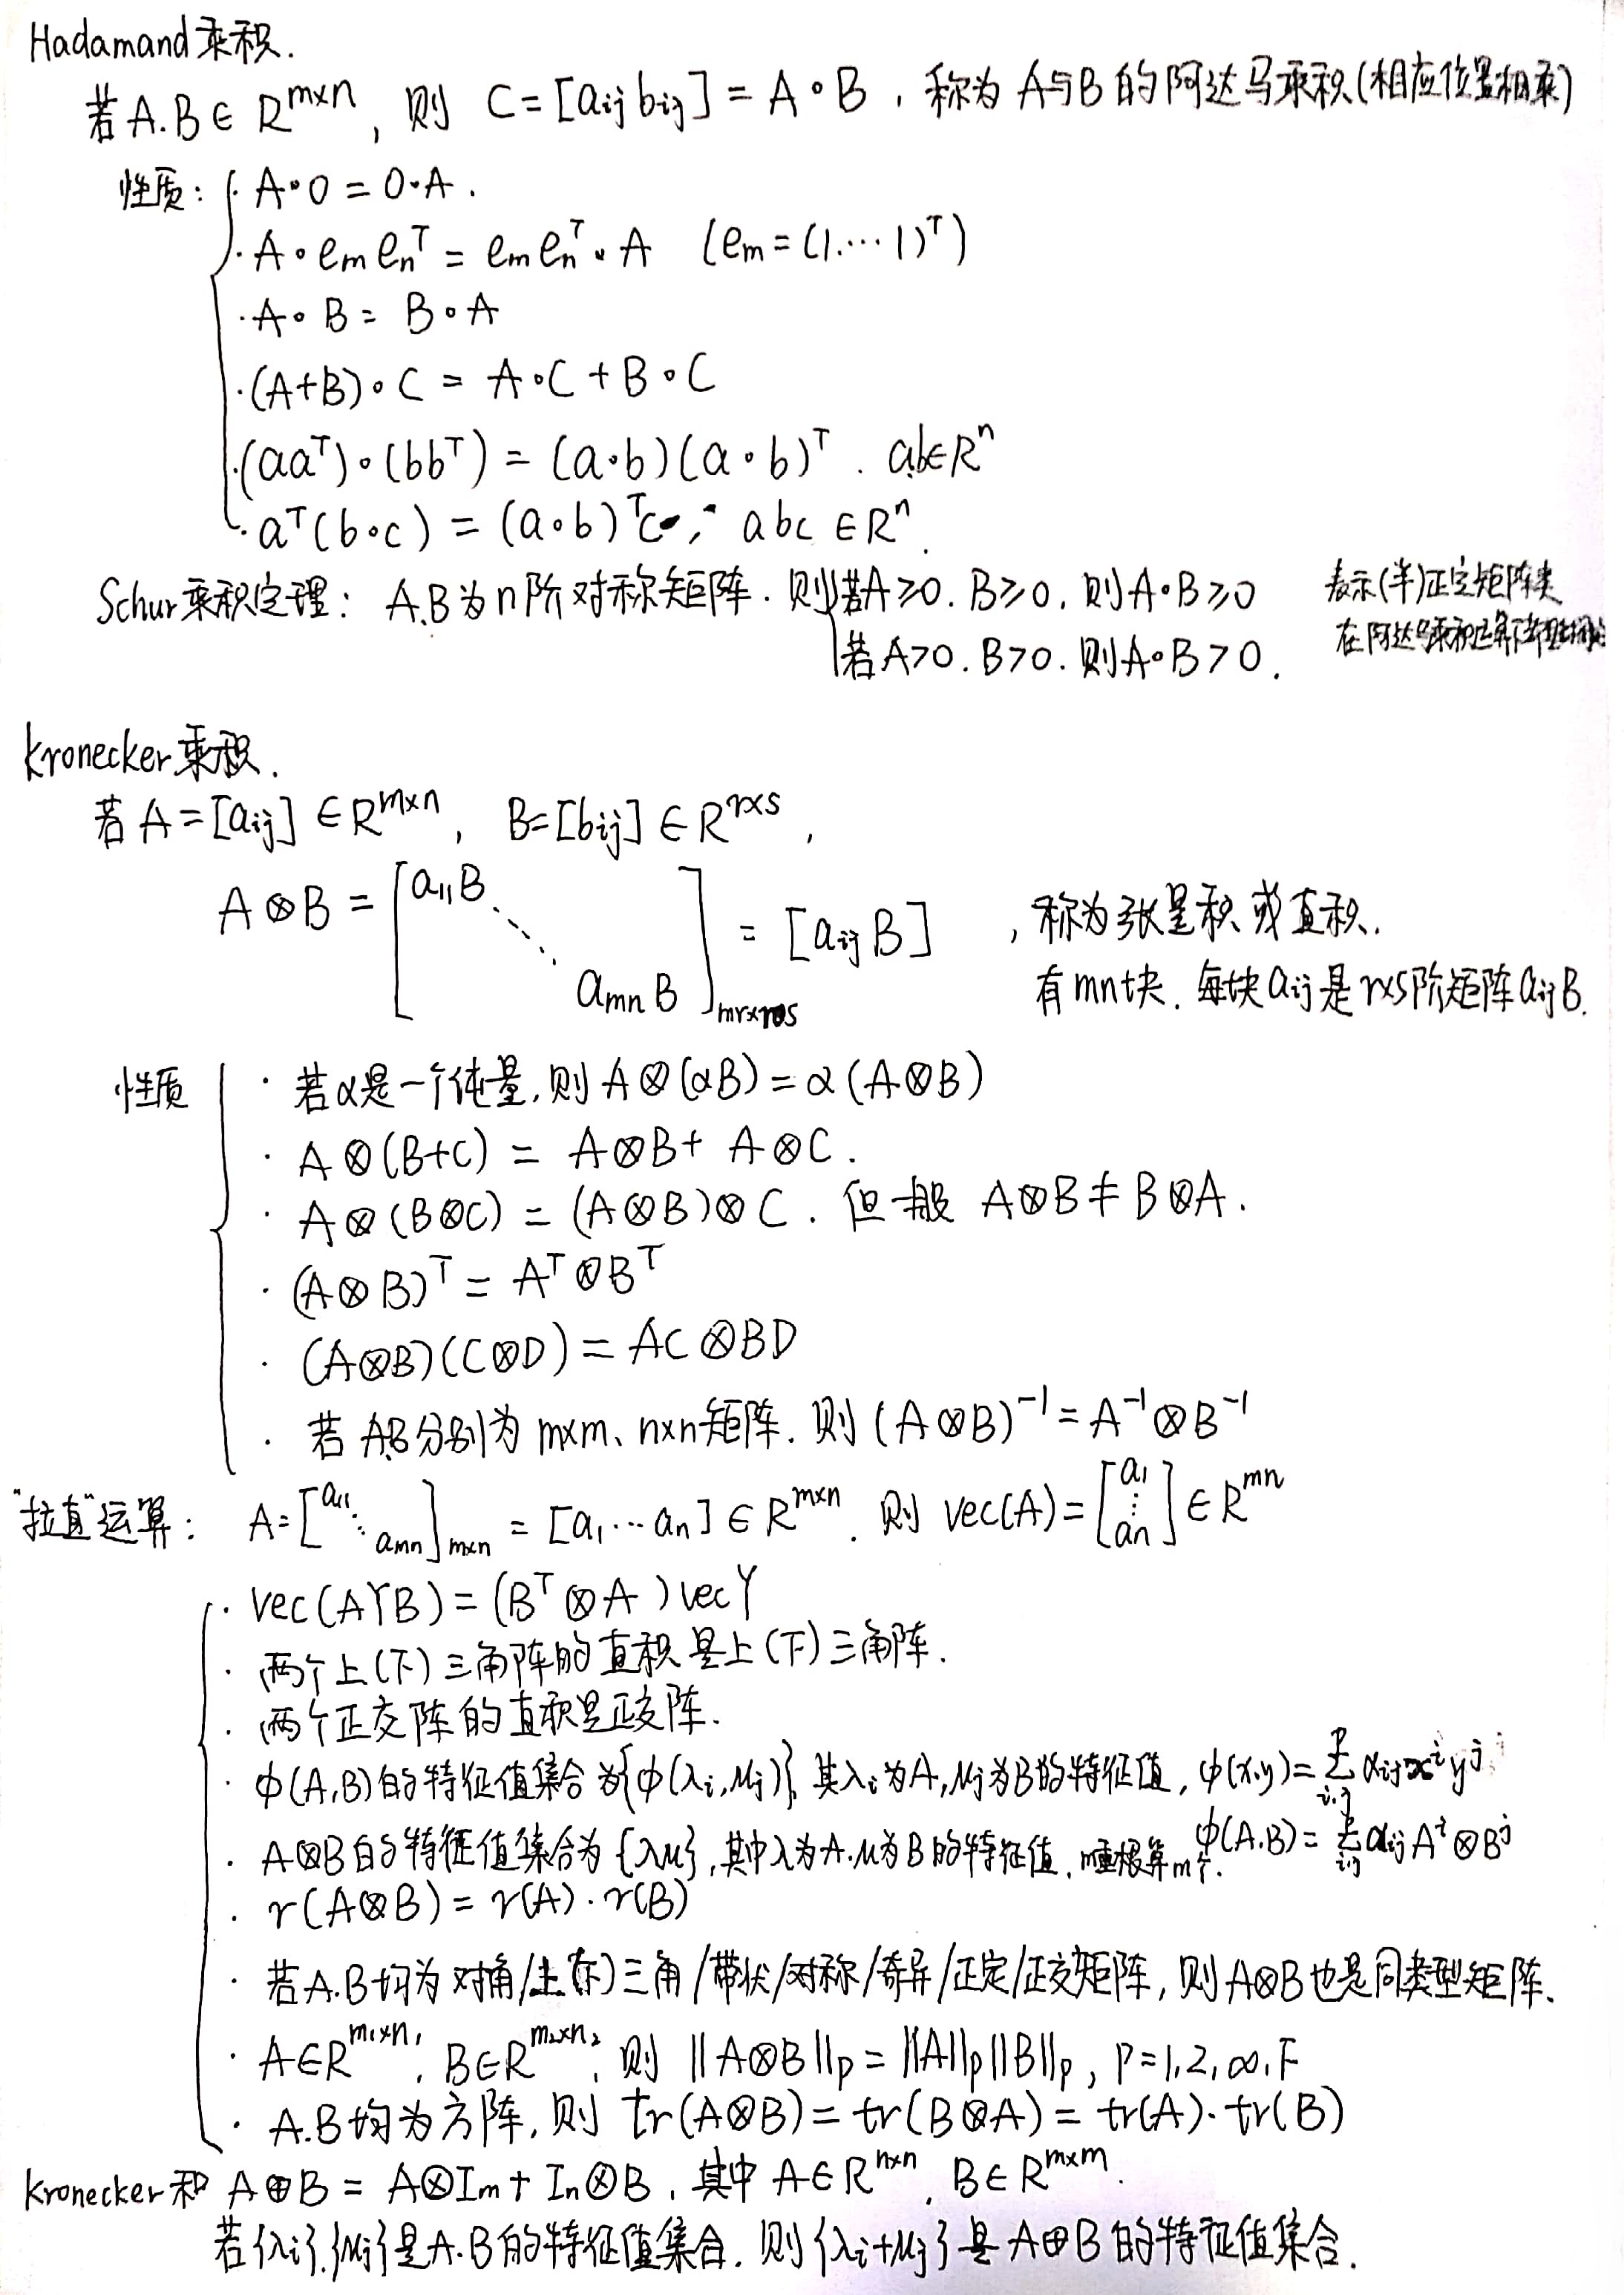 Hadamand乘积.
若A.B∈R^{m×n}, 则 C=[aij bij]=A∘B, 称为A与B的阿达马乘积(相应位置相乘)
性质: · A∘0=0∘A.
· A∘e_m e_n^T = e_m e_n^T∘A (e_m=(1.···1)^T)
· A∘B=B∘A
· (A+B)∘C = A∘C+B∘C
· (aa^T)∘(bb^T) = (a∘b)(a∘b)^T. a,b∈R^n
· a^T(b∘c) = (a∘b)^T c, abc∈R^n.
Schur乘积定理: A.B为n阶对称矩阵. 则 若A≥0. B≥0, 则A∘B≥0 表示(半)正定矩阵类
若A>0. B>0. 则A∘B>0. 在阿达马乘积运算下
kronecker乘积.
若A=[aij]∈R^{m×n}, B=[bij]∈R^{r×s},
A⊗B = [a11B ⋱ amnB]_{mr×ns} = [aij B], 称为张量积或直积.
有mn块. 每块aij是r×s阶矩阵aijB.
性质 · 若α是一个纯量, 则A⊗(αB)=α(A⊗B)
· A⊗(B+C) = A⊗B+ A⊗C.
· A⊗(B⊗C) = (A⊗B)⊗C. 但一般 A⊗B≠B⊗A.
· (A⊗B)^T = A^T⊗B^T
· (A⊗B)(C⊗D) = AC⊗BD
· 若A.B分别为m×m、n×n矩阵. 则(A⊗B)^{-1}=A^{-1}⊗B^{-1}
"拉直"运算: A=[a11 ⋱ amn]_{m×n} = [a1···an]∈R^{m×n}. 则 vec(A)=[a1 ⋮ an]∈R^{mn}
· vec(AYB)=(B^T⊗A)vecY
· 两个上(下)三角阵的直积是上(下)三角阵.
· 两个正交阵的直积是正交阵.
· φ(A,B)的特征值集合为{φ(λi,μj)}, 其λi为A,μj为B的特征值, φ(x,y)=Σ_{i,j}^{p} αij x^i y^j
· A⊗B的特征值集合为{λμ},其中λ为A.μ为B的特征值, m重根算m个. φ(A.B)=Σ_{i,j}^{p} αij A^i⊗B^j
· r(A⊗B)=r(A)·r(B)
· 若A.B均为对角/上(下)三角/带状/对称/奇异/正定/正交矩阵, 则A⊗B也是同类型矩阵.
· A∈R^{m1×n1}, B∈R^{m2×n2}, 则 ||A⊗B||p = ||A||p||B||p, P=1,2,∞,F
· A.B均为方阵, 则 tr(A⊗B)=tr(B⊗A)=tr(A)·tr(B)
kronecker和 A⊕B = A⊗Im+ In⊗B, 其中 A∈R^{n×n}, B∈R^{m×m}.
若{λi}.{μj}是A.B的特征值集合. 则{λi+μj}是A⊕B的特征值集合.